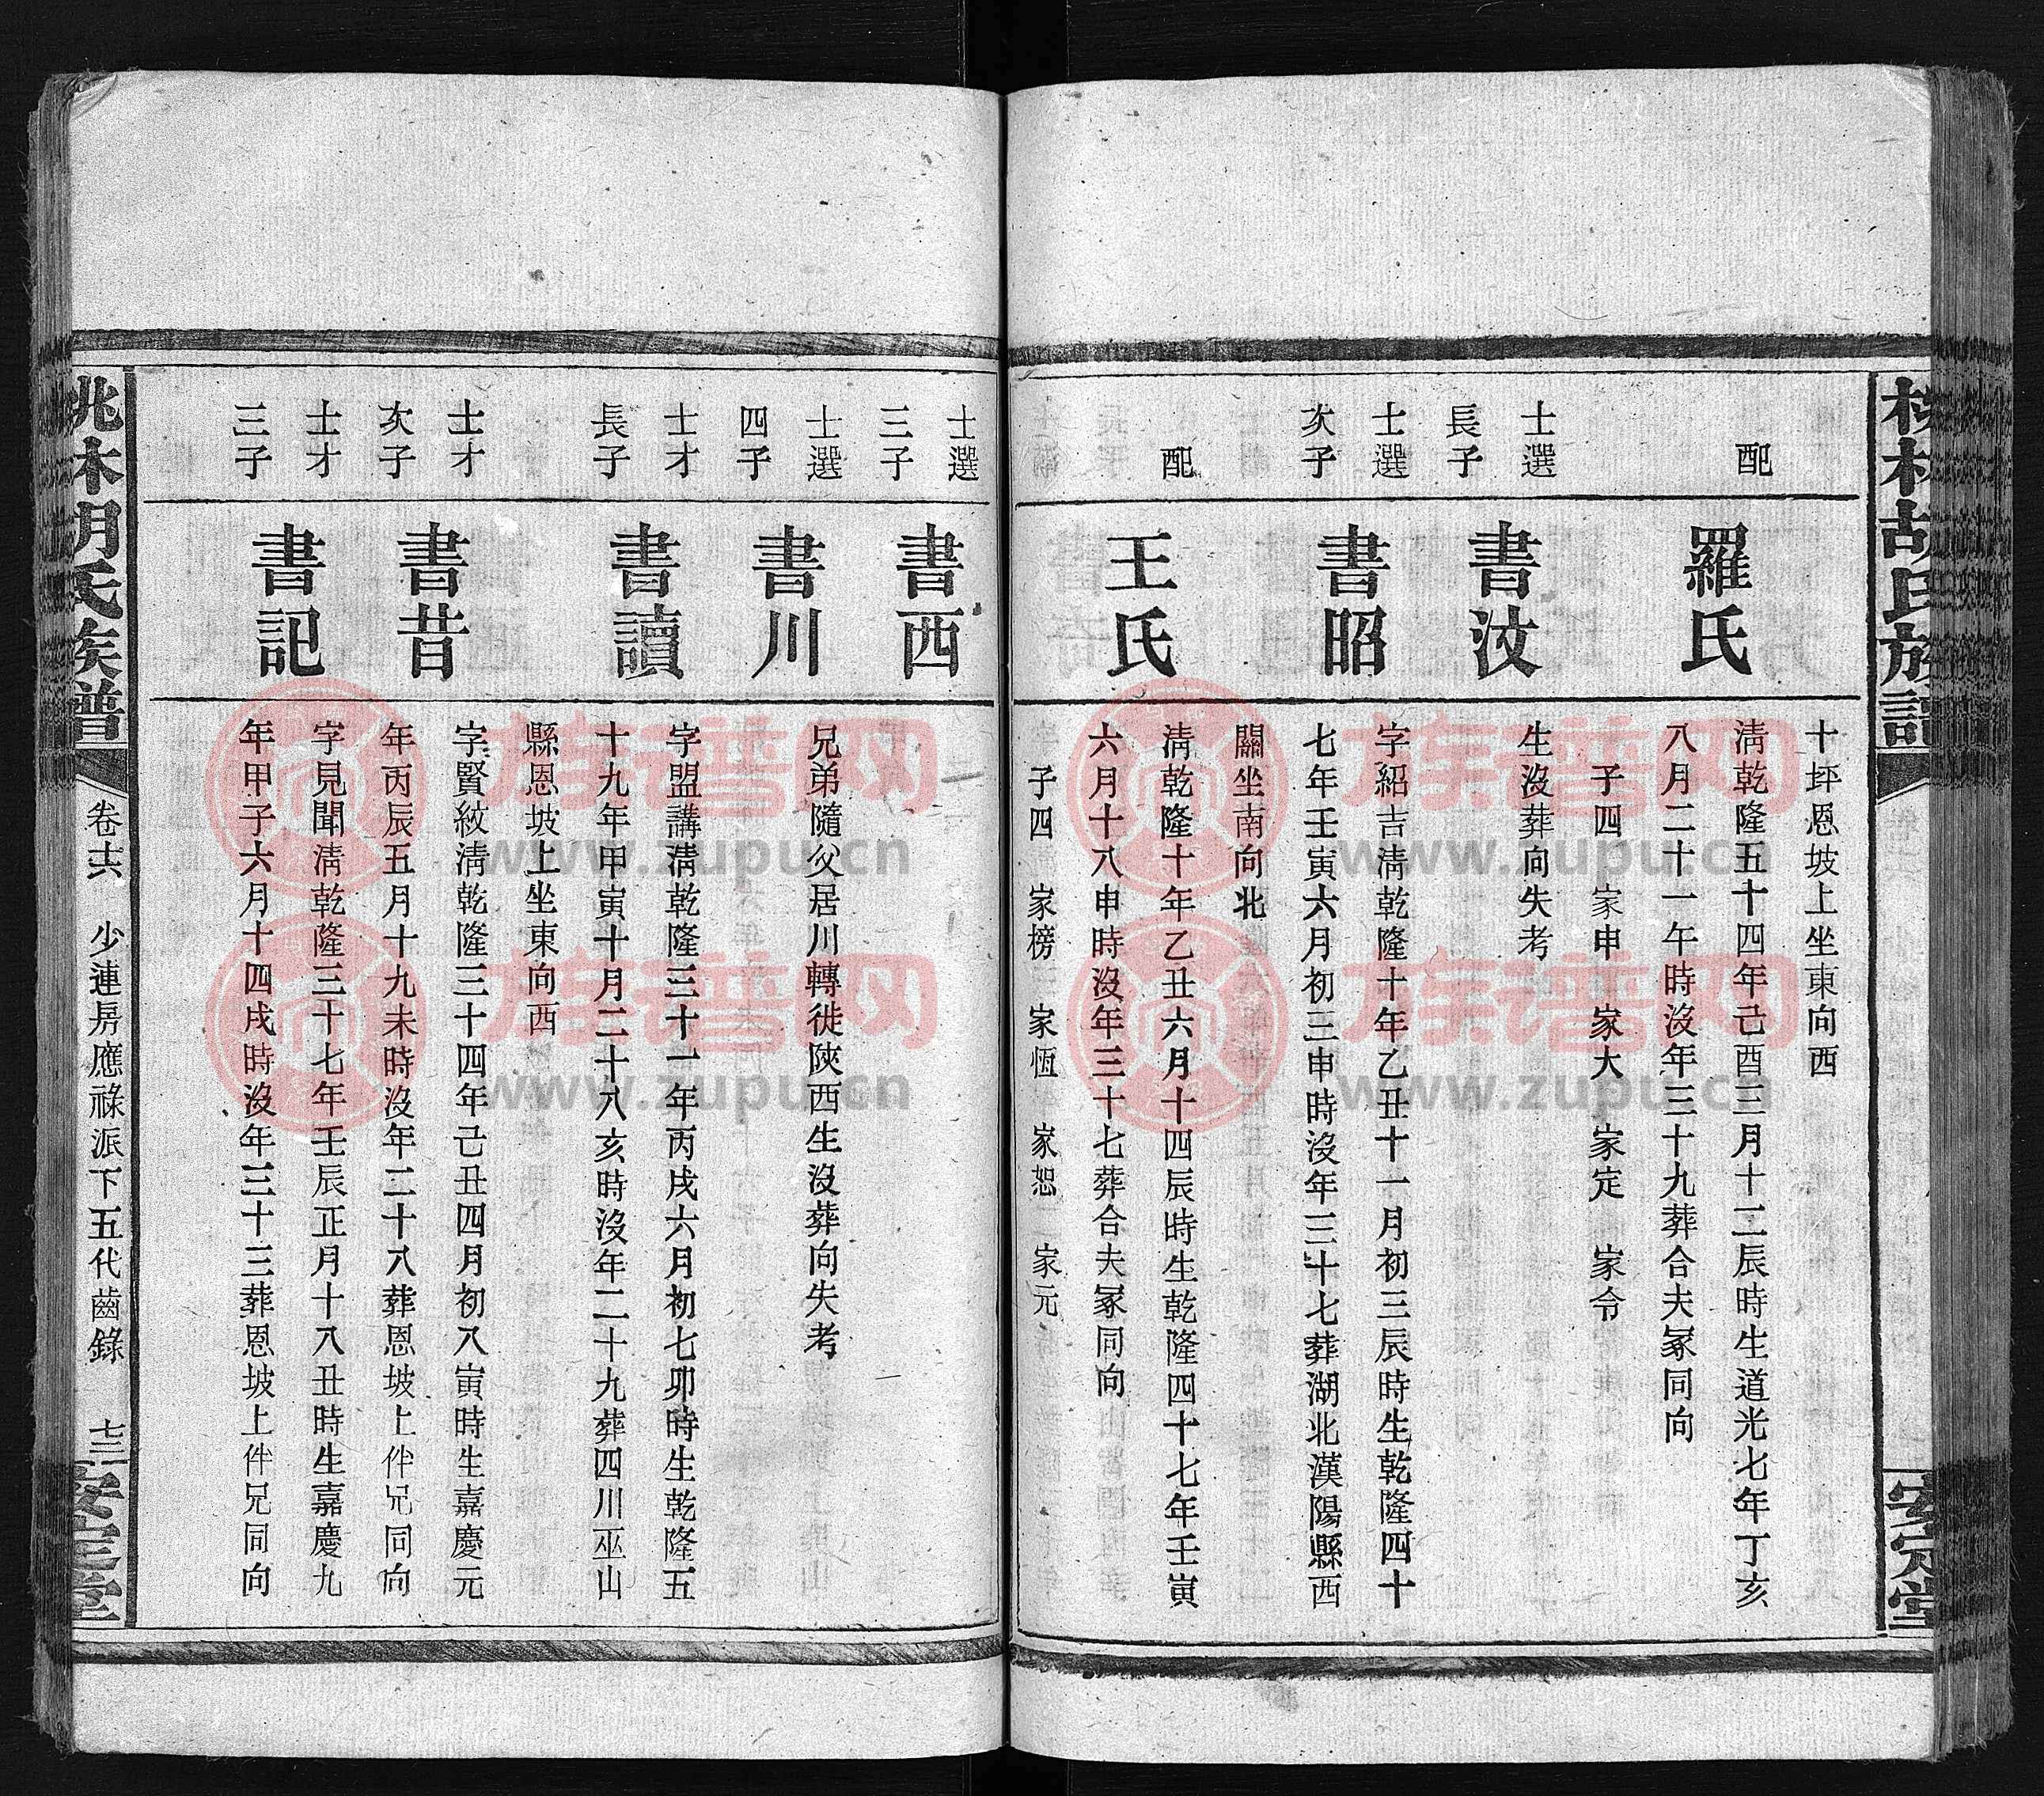 胡氏族譜
安定堂
十坪恩坡上坐東向西
配
羅氏
清乾隆五十四年己酉三月十二辰時生道光七年丁亥
八月二十一午時沒年三十九葬合夫冢同向
子四 家申 家大 家定 家令
士選
長子
書汶
生沒葬向失考
士選
次子
書昭
字紹吉清乾隆十年乙丑十一月初三辰時生乾隆四十
七年壬寅六月初三申時沒年三十七葬湖北漢陽縣西
關坐南向北
配
王氏
清乾隆十年乙丑六月十四辰時生乾隆四十七年壬寅
六月十八申時沒年三十七葬合夫冢同向
子四 家榜 家恆 家恕 家元
士選
三子
書西
士選
四子
書川
兄弟隨父居川轉徙陝西生沒葬向失考
士才
長子
書讀
字盟講清乾隆三十一年丙戌六月初七卯時生乾隆五
十九年甲寅十月二十八亥時沒年二十九葬四川巫山
縣恩坡上坐東向西
士才
次子
書昔
字賢紋清乾隆三十四年己丑四月初八寅時生嘉慶元
年丙辰五月十九未時沒年二十八葬恩坡上伴兄同向
士才
三子
書記
字見聞清乾隆三十七年壬辰正月十八丑時生嘉慶九
年甲子六月十四戌時沒年三十三葬恩坡上伴兄同向
木胡氏族譜
卷十六
少連房應祿派下五代齒錄
七三
安定堂
族谱网
www.zupu.cn
族谱网
www.zupu.cn
族谱网
www.zupu.cn
族谱网
www.zupu.cn